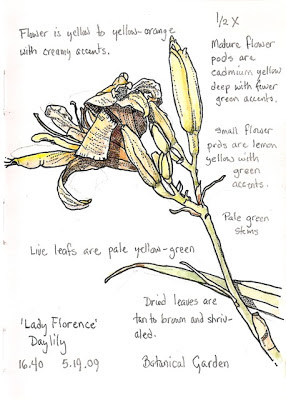 Flower is yellow to yellow-orange
with creamy accents.
1/2 X
Mature flower
pods are
cadmium yellow
deep with fewer
green accents.
Small flower
pods are lemon
yellow with
green
accents.
Pale green
stems
Live leafs are pale yellow-green
Dried leaves are
tan to brown and shriv-
aled.
'Lady Florence'
Daylily
16.40 5.19.09
Botanical Garden